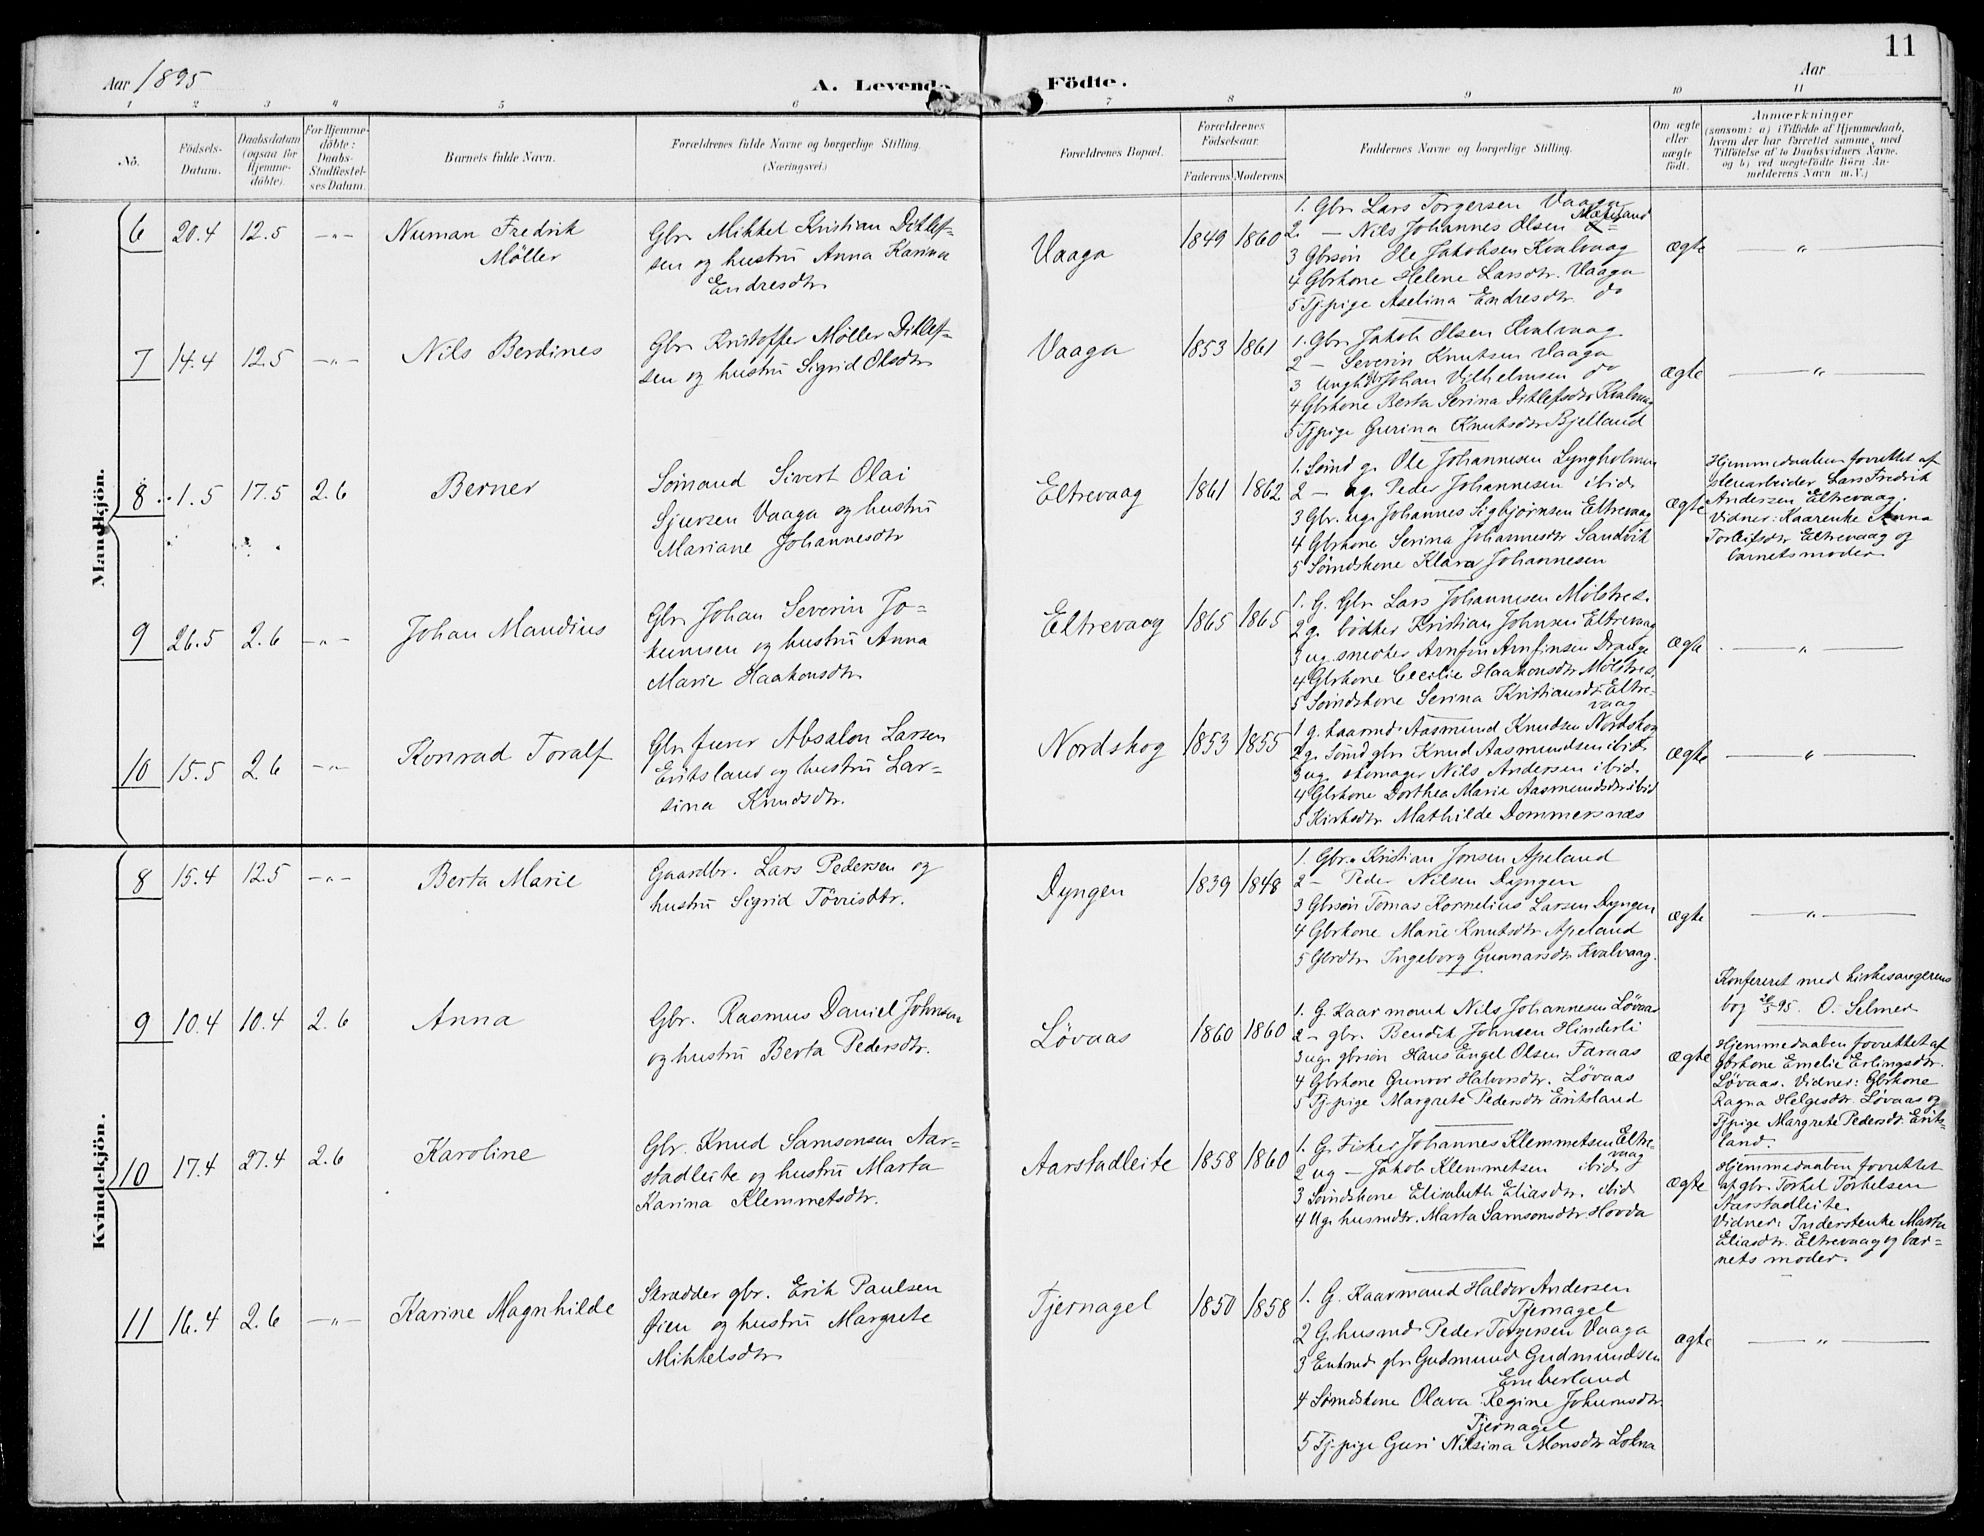 11
Aar 1895
A. Levende Födte.
Aar
1 2 3 4 5 6 7 8 9 10 11
Nò.
Födsels-
Datum.
Daabsdatum
(ogsaa for
Hjemme-
döbte).
For Hjemme-
döbte:
Daabs-
Stadfæstel-
ses Datum.
Barnets fulde Navn.
Forældrenes fulde Navne og borgerlige Stilling.
(Næringsvei.)
Forældrenes Bopæl.
Forældrenes
Födselsaar.
Faderens. Moderens.
Faddernes Navne og borgerlige Stilling.
Om ægte
eller
uægte
födt.
Anmærkninger
(saasom: a) i Tilfælde af Hjemmedaab,
hvem der har forrettet samme, med
Tilföielse af to Daabsvidners Navne,
og b) ved uægtefödte Börn An-
melderens Navn m.V.)
Mandkjön.
6 20.4 12.5 —"—
Numan Fredrik
Møller
Gbr. Mikkel Kristian Ditlef-
sen og hustru Anna Karina
Endresdtr.
Vaaga
1849 1860
1. Gbr. Lars Torgersen Vaaga
2. — Nils Johannes Olsen
3 Gbrsøn Ole Jakobsen Kvalvaag
4 Gbrkone Helene Larsdtr. Vaaga
5 Tj.pige Aselina Endresdtr. do
ægte
— " —
7 14.4 12.5 —"—
Nils Berdines
Gbr. Kristoffer Møller Ditlef-
sen og hustru Sigrid Olsdtr.
Vaaga
1853 1861
1. Gbr. Jakob Olsen Kvalvaag
2 — Severin Knutsen Vaaga
3 Ungk. Johan Vilhelmsen do
4 Gbrkone Berta Serina Ditlefsdtr. Kvalvaag
5 Tjpige Gurina Knutsdtr. Bjelland
ægte
— " —
8 1.5 17.5 2.6
Berner
Sømand Sivert Olai
Sjursen Vaaga og hustru
Mariane Johannesdtr
Eltrevaag
1861 1862
1. Sømd g. Ole Johannesen Lyngholmen
2 — ug. Peder Johannesen ibid.
3 Gbr. ug. Johannes Sigbjørnsen Eltrevaag
4 Gbrkone Serina Johannesdtr Sandvik
5 Sømdskone Klara Johannesen
ægte
Hjemmedaaben forrettet af
stenarbeider Lars Fredrik
Andersen Eltrevaag.
Vidner: Kaarenke Anna
Torleifsdtr Eltrevaag og
barnets moder
9 26.5 2.6 —"—
Johan Mandius
Gbr. Johan Severin Jo-
kumsen og hustru Anna
Marie Haakonsdtr.
Eltrevaag
1865 1865
1. G. Gbr Lars Johannesen Mølstre.
2 g. bødker Kristian Johnsen Eltrevaag
3 ug. snedker Arnfin Arnfinsen Drange
4 Gbrkone Cecilie Haakonsdtr Mølstre.
5 Sømdskone Serina Kristiansdtr Eltre-
vaag
ægte
— " —
10 15.5 2.6 —"—
Konrad Toralf
Gbr. fører Absalon Larsen
Eritsland og hustru Lar-
sina Knudsdtr.
Nordskog
1853 1855
1 g. kaarmd. Aasmund Knudsen Nordskog
2 g. Sømd gbr. Knud Aasmundsen ibid.
3 ug. skomager Nils Andersen ibid.
4 Gbrkone Dorthea Marie Aasmundsdtr ibid
5 Kirksdtr Mathilde Dommersnæs
ægte
— " —
Kvindekjön.
8 15.4 12.5 —"—
Berta Marie
Gaardbr. Lars Pedersen og
hustru Sigrid Tørrisdtr.
Dyngen
1839 1848
1. Gbr. Kristian Jonsen Apeland
2 — Peder Nilsen Dyngen
3 Gbrsøn Tomas Kornelius Larsen Dyngen
4 Gbrkone Marie Knutsdtr Apeland
5 Gbrdtr. Ingeborg Gunnarsdtr Kvalvaag.
ægte
— " —
Konfereret med kirkesangerens
bog 26/5 95. O. Selmer
9 10.4 10.4 2.6
Anna
Gbr. Rasmus Daniel Johnsen
og hustru Berta Pedersdtr.
Løvaas
1860 1860
1. G. Kaarmand Nils Johannesen Løvaas
2 — gbr. Bendik Johnsen Hinderli
3 ug. gbrsøn Hans Engel Olsen Faraas
4 Gbrkone Gunvor Halvorsdtr. Løvaas
5 Tj.pige Margrete Pedersdtr Eritsland
ægte
Hjemmedaaben forrettet af
gbrkone Emelie Erlingsdtr.
Løvaas. Vidner: Gbrkone
Ragna Helgesdtr. Løvaas og
Tjpige Margrete Pedersdtr. Erits-
land.
10 17.4 27.4 2.6
Karoline
Gbr. Knud Samsonsen Aar-
stadleite og hustru Marta
Karina Klemmetsdtr.
Aarstadleite
1858 1860
1. G. Fisker Johannes Klemmetsen Eltre-
vaag
2 ug — Jakob Klemmetsen ibid.
3 Sømdskone Elisabeth Eliasdtr. ibid
4 Ug. husmdtr. Marta Samsonsdtr. Hovda
ægte
Hjemmedaaben forrettet
af gbr. Torkel Torkelsen
Aarstadleite.
Vidner: Inderstenke Marta
Eliasdtr. Eltrevaag og bar-
nets moder.
11 16.4 2.6 —"—
Karine Magnhilde
Skrædder gbr. Erik Paulsen
Øien og hustru Margrete
Mikkelsdtr.
Tjernagel
1850 1858
1. G. Kaarmand Haldor Andersen
Tjernagel
2 G. husmd Peder Torgersen Vaaga
3 Enkmd gbr. Gudmund Gudmundsen
Emberland
4 Sømdskone Olava Regine Johannsdtr.
Tjernagel
5 Tj.pige Guri Nilsina Monsdtr Lokna
ægte
— " —